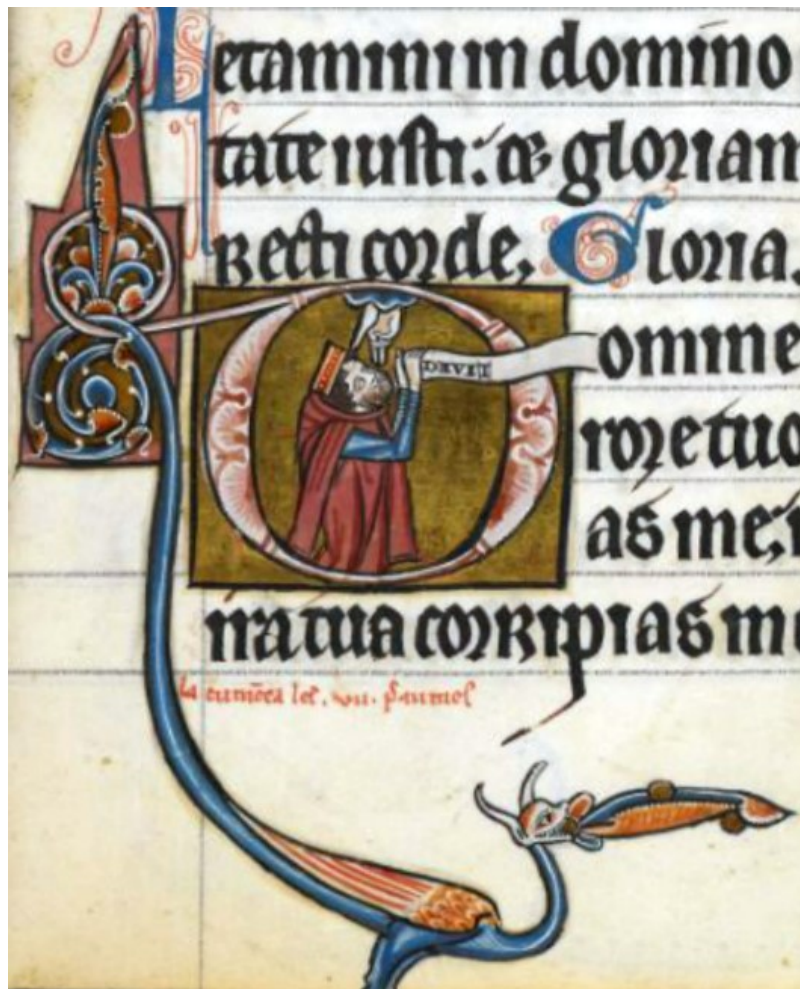 Letamini in domino
tate iusti: & gloriam
Recti corde, Gloria.
Domine
rore tuo
as me,
ira tua corripias m